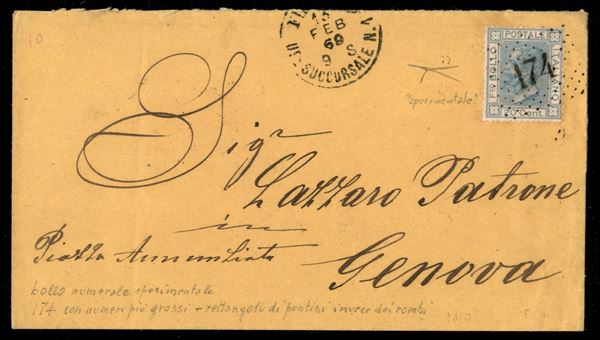 10
FI
15
FEB
69
9 S
UF. SUCCURSALE N. 1
"sperimentale"
POSTALE
F.co BOLLO
ITALIANO
20 Cent.
174
Sigr
Lazzaro Patrone
in
Piazza Annunziata
Genova
bollo numerale sperimentale
174 con numeri più grossi + rettangolo di puntini invece dei rombi